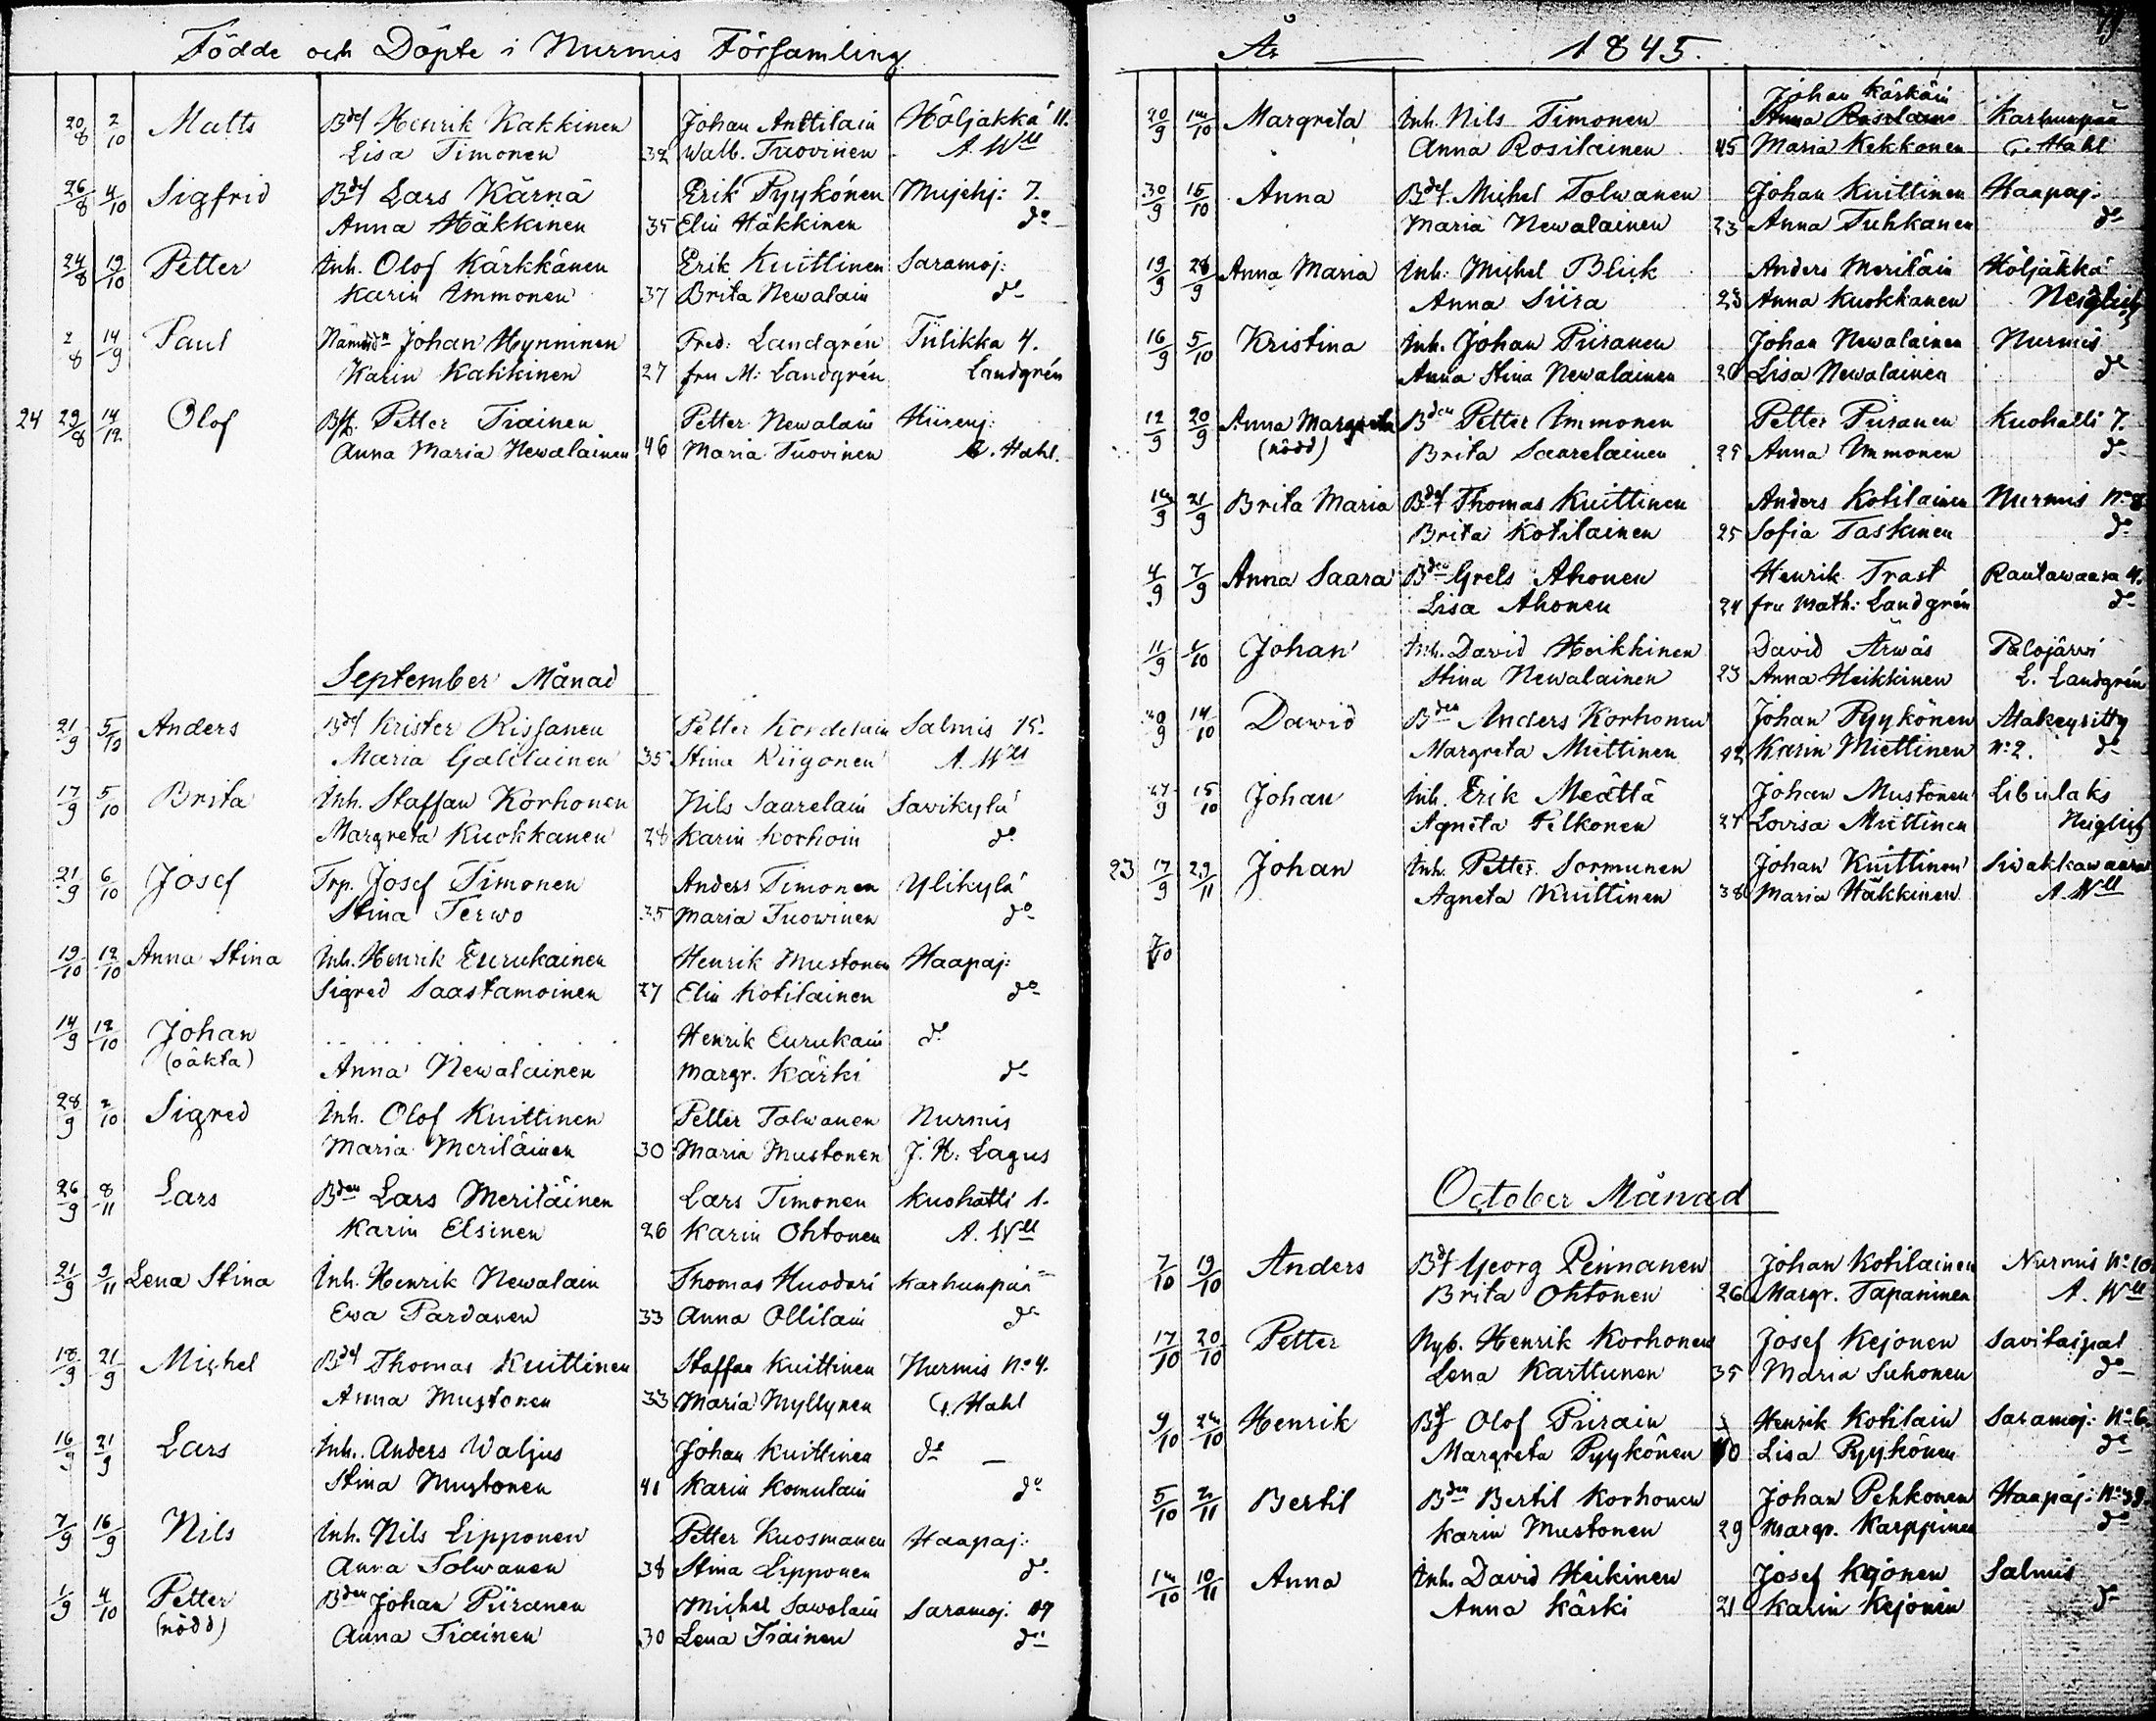 Födde och Döpte i Nurmis Församling
20/8 2/10 Matts Bdsf Henrik Kakkinen Johan Anttilain Höljäkkä 11.
Lisa Timonen 32 Walb. Tuovinen A. Wll
26/8 4/10 Sigfrid Bdsf Lars Kärnä Erik Pyykönen Mujehj: 7.
Anna Häkkinen 35 Elin Häkkinen do
24/8 19/10 Petter Inh. Olof Kärkkänen Erik Kuittinen Saramoj:
Karin Immonen 37 Brita Newalain do
2/8 14/9 Paul Nämdn Johan Hynninen Fred: Landgrén Tiilikka 4.
Karin Kakkinen 27 fru M: Landgrén Landgrén
24 29/8 14/12 Olof Bsf. Petter Tiainen Petter Newalain Hiirenj:
Anna Maria Newalainen 46 Maria Tuovinen A. Hahl.
September Månad
21/9 5/10 Anders Bdsf Krister Rissanen Petter Kordelain Salmis 15.
Maria Galilainen 35 Stina Riigonen A. Wll
17/9 5/10 Brita Inh. Staffan Korhonen Nils Saarelain Savikylä
Margreta Kuokkanen 28 Karin Korhoin do
21/9 6/10 Josef Trp. Josef Timonen Anders Timonen Ylikylä
Stina Terwo 35 Maria Tuowinen do
19/10 12/10 Anna Stina Inh. Henrik Eurukainen Henrik Mustonen Haapaj:
Sigred Saastamoinen 27 Elin Kotilainen do
14/9 12/10 Johan Henrik Eurukain do
(oäkta) Anna Newalainen Margr. Kärki do
28/9 2/10 Sigred Inh. Olof Kuittinen Petter Tolwanen Nurmis
Maria Meriläinen 30 Maria Mustonen J. H: Lagus
26/9 8/11 Lars Bden Lars Meriläinen Lars Timonen Kuohatti 1.
Karin Elsinen 26 Karin Ohtonen A. Wll
21/9 9/11 Lena Stina Inh. Henrik Newalain Thomas Huodari Karhunpää
Ewa Pardanen 33 Anna Ollilain do
18/9 21/9 Michel Bdsf Thomas Kuittinen Staffan Kuittinen Nurmis No 4.
Anna Mustonen 33 Maria Myllynen G. Hahl
16/9 21/9 Lars Inh. Anders Waljus Johan Kuittinen do
Stina Mustonen 41 Karin Komulain do
7/9 16/9 Nils Inh. Nils Lipponen Petter Kuosmanen Haapaj:
Anna Tolwanen 38 Stina Lipponen do
1/9 4/10 Petter Bden Johan Piiranen Michel Sawolain Saramoj: 17
(nödd) Anna Tiainen 30 Lena Tiainen do
År 1845. 19.
Johan Kärkäin
20/9 12/10 Margreta Inh. Nils Timonen Anna Rosilain Karhunpää
Anna Rosilainen 45 Maria Kekkonen G. Hahl
30/9 15/10 Anna Bdsf. Michel Tolwanen Johan Kuittinen Haapaj:
Maria Newalainen 23 Anna Tuhkanen do
19/9 28/9 Anna Maria Inh. Michel Blick Anders Meriläin Höljäkkä
Anna Siira 28 Anna Kuokkanen Neiglick
16/9 5/10 Kristina Inh. Johan Piiranen Johan Newalainen Nurmis
Anna Stina Newalainen 20 Lisa Newalainen do
12/9 20/9 Anna Margreta Bden Petter Immonen Petter Piiranen Kuohatti 7.
(nödd) Brita Saarelainen 25 Anna Immonen do
12/9 21/9 Brita Maria Bdsf Thomas Kuittinen Anders Kotilainen Nurmis No 8
Brita Kotilainen 25 Sofia Taskinen do
4/9 7/9 Anna Saara Bden Grels Ahonen Henrik Trast Rautawaara 4.
Lisa Ahonen 24 fru Math: Landgrén do
11/9 6/10 Johan Inh. David Heikkinen David Ärwäs Palojärwi
Stina Newalainen 23 Anna Heikkinen L. Landgrén
30/9 14/10 Dawid Bden Anders Korhonen Johan Pyykönen Makeyritty
Margreta Miettinen 42 Karin Miettinen No 2. do
27/9 15/10 Johan Inh. Erik Meättä Johan Mustonen Libulaks
Agneta Pelkonen 27 Lovisa Miettinen Neiglick
23 17/9 29/11 Johan Inh. Petter Sormunen Johan Kuittinen Siwakkawaara
Agneta Kuittinen 38 Maria Häkkinen A. Wll
7/10
October Månad
7/10 19/10 Anders Bdf Georg Pennanen Johan Kotilainen Nurmis No 10.
Brita Ohtonen 26 Margr. Tapaninen A. Wll
17/10 20/10 Petter Nyb. Henrik Korhonen Josef Kejonen Savitaipal
Lena Karttunen 35 Maria Suhonen do
9/10 22/10 Henrik Bsf Olof Piirain Henrik Kotilain Saramoj: No 6.
Margreta Pyykönen 40 Lisa Pyykönen do
5/10 2/11 Bertil Bden Bertil Korhonen Johan Pehkonen Haapaj: No 38.
Karin Mustonen 29 Margr. Karppinen do
12/10 10/11 Anna Inh. David Heikinen Josef Kejonen Salmis
Anna Kärki 21 Karin Kejonen do